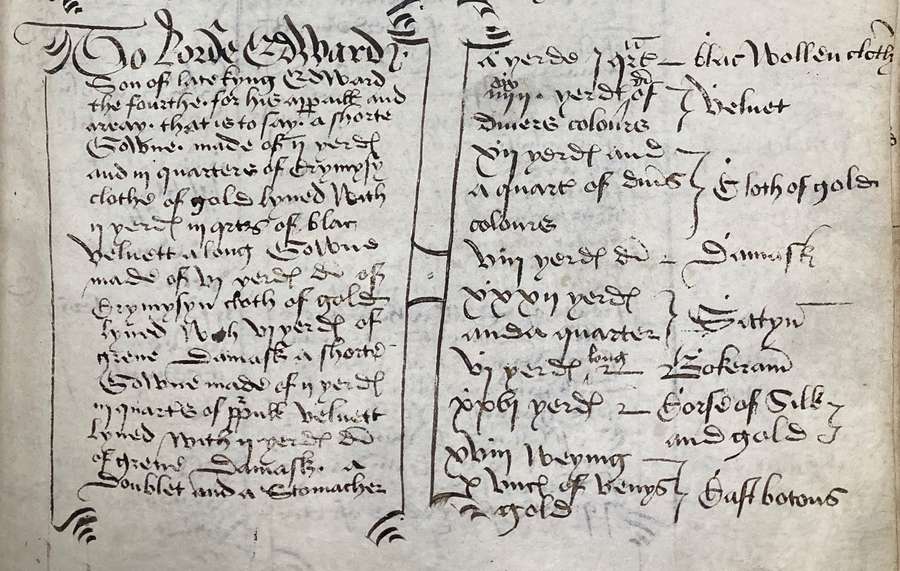 To Lorde Edward
Son of late kyng Edward
the fourthe. for his appaill and
araay. that is to say. a shorte
Gowne. made of ij yerdes
and iij quarters of Crymysy
clothe of gold lyned With
ij yerdes iij qrtrs of blac
velvett a long Gowne
made of vj yerdes di of
Crymysyn cloth of gold
lyned With vj yerdes of
grene Damask a shorte
Gowne made of ij yerdes
iij quarters of purpull velvett
lyned with ij yerdes di
of grene Damask. a
Doublet and a Stomacher
a yerde j qrt blac Wollen cloth
yerdes of Velvet
divers colours
xij yerdes and
a quart of divers Cloth of gold
colours
viij yerdes di Damask
xxxij yerdes
and a quarter Sattyn
vj yerdes long Bokeram
xxvj yerdes Corse of Silk
and gold
xviij weying
x unces of venys Cast botons
gold